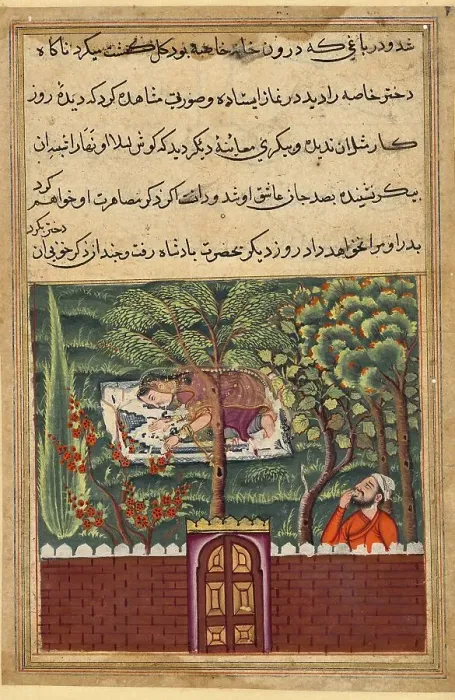 شد و در باغی که درون خانه خاصه بود گل گشت میکرد ناکاه
دختر خاصه را دید در نماز ایستاده و صورتی مشاهده کرد که دیدهٔ روز
کار مثل ان ندیده و پیکری معاینه دیگر دید که کوش لیلا و نهارا شبه ان
پیکر نشنیده بصد جان عاشق او شد و کر ذکر مصاهرت او خواهم کرد
پدر او مرا نخواهد داد روز دیگر بحضرت بادشاه رفت و چند از ذکر خوبی ان دختر بکرد